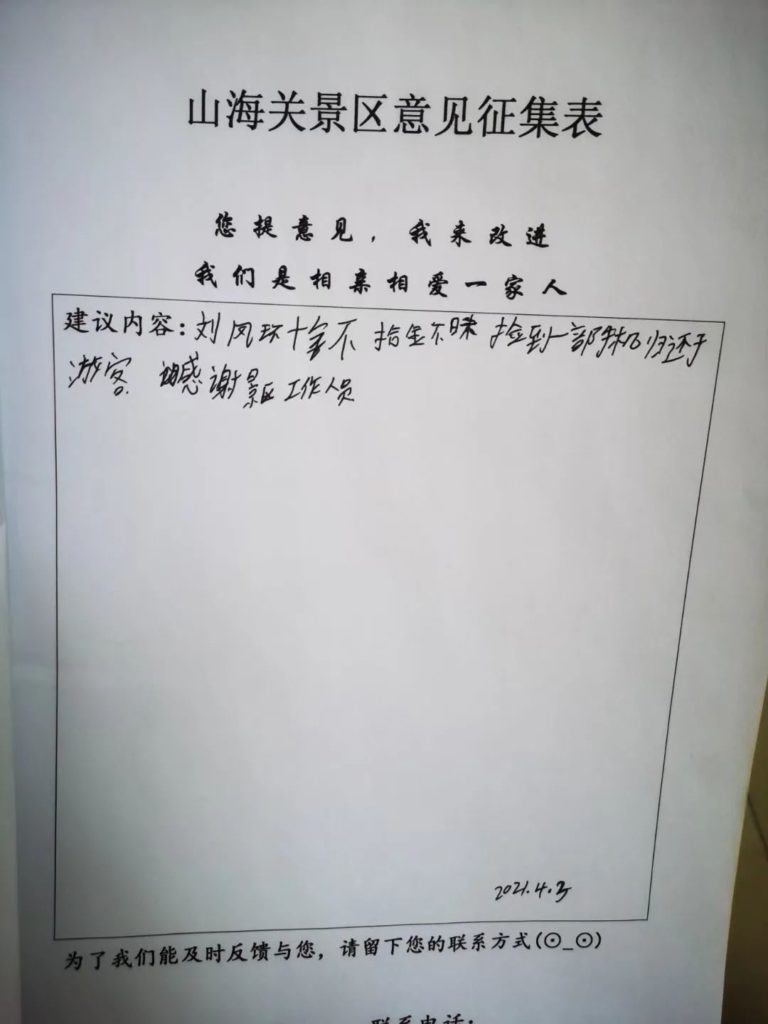 山海关景区意见征集表
您提意见，我来改进
我们是相亲相爱一家人
建议内容：刘凤环十金不 拾金不昧 捡到一部手机归还于
游客 感谢景区工作人员
2021.4.3
为了我们能及时反馈与您，请留下您的联系方式(⊙_⊙)
联系电话：